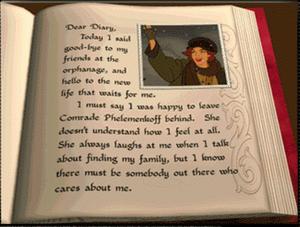 Dear Diary,
Today I said
good-bye to my
friends at the
orphanage, and
hello to the new
life that waits for me.
I must say I was happy to leave
Comrade Phelemenkoff behind. She
doesn't understand how I feel at all.
She always laughs at me when I talk
about finding my family, but I know
there must be somebody out there who
cares about me.